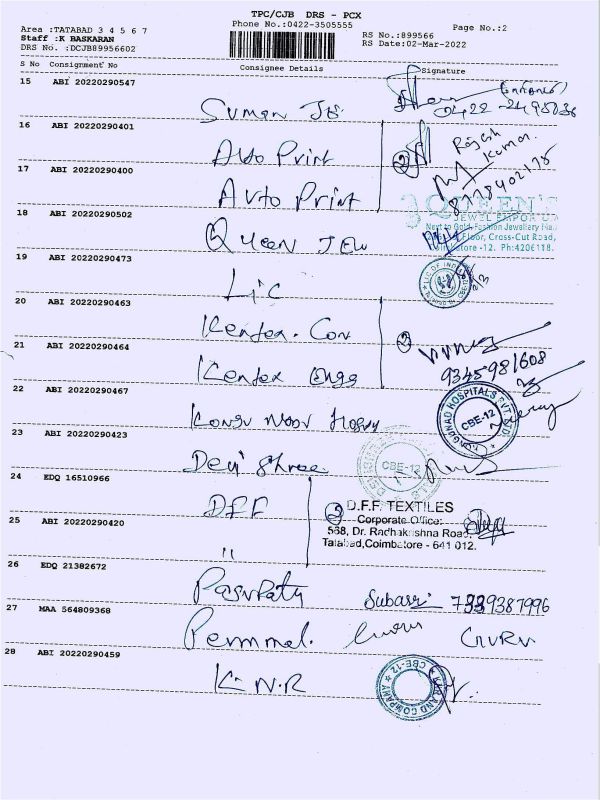 TPC/CJB DRS - PCX
Area :TATABAD 3 4 5 6 7
Phone No.:0422-3505555
Page No.:2
Staff :K BASKARAN
RS No.:899566
DRS No. :DCJB89956602
RS Date:02-Mar-2022
S No Consignment No
Consignee Details
Signature
15 ABI 20220290547
Suman
0422
16 ABI 20220290401
Auto Print
2
Rajesh
Kumar.
17 ABI 20220290400
Auto Print
8778402175
QUEEN'S
JEWEL EMPORIUM
18 ABI 20220290502
Queen Jew
Floor, Cross-Cut Road,
-12. Ph:4206118.
19 ABI 20220290473
Lic
20 ABI 20220290463
Kenfex. Con
2
21 ABI 20220290464
Kenfex Engg
9345981608
22 ABI 20220290467
CBE-12
23 ABI 20220290423
Devi Shree
CBE-12
24 EDQ 16510966
DFF
2
D.F.F. TEXTILES
Corporate Office:
568, Dr. Radhakrishna Road,
Tatabad,Coimbatore - 641 012.
25 ABI 20220290420
"
26 EDQ 21382672
Pasupaty
7339387996
27 MAA 564809368
Perumal.
Guru
28 ABI 20220290459
K.N.R
CBE-12